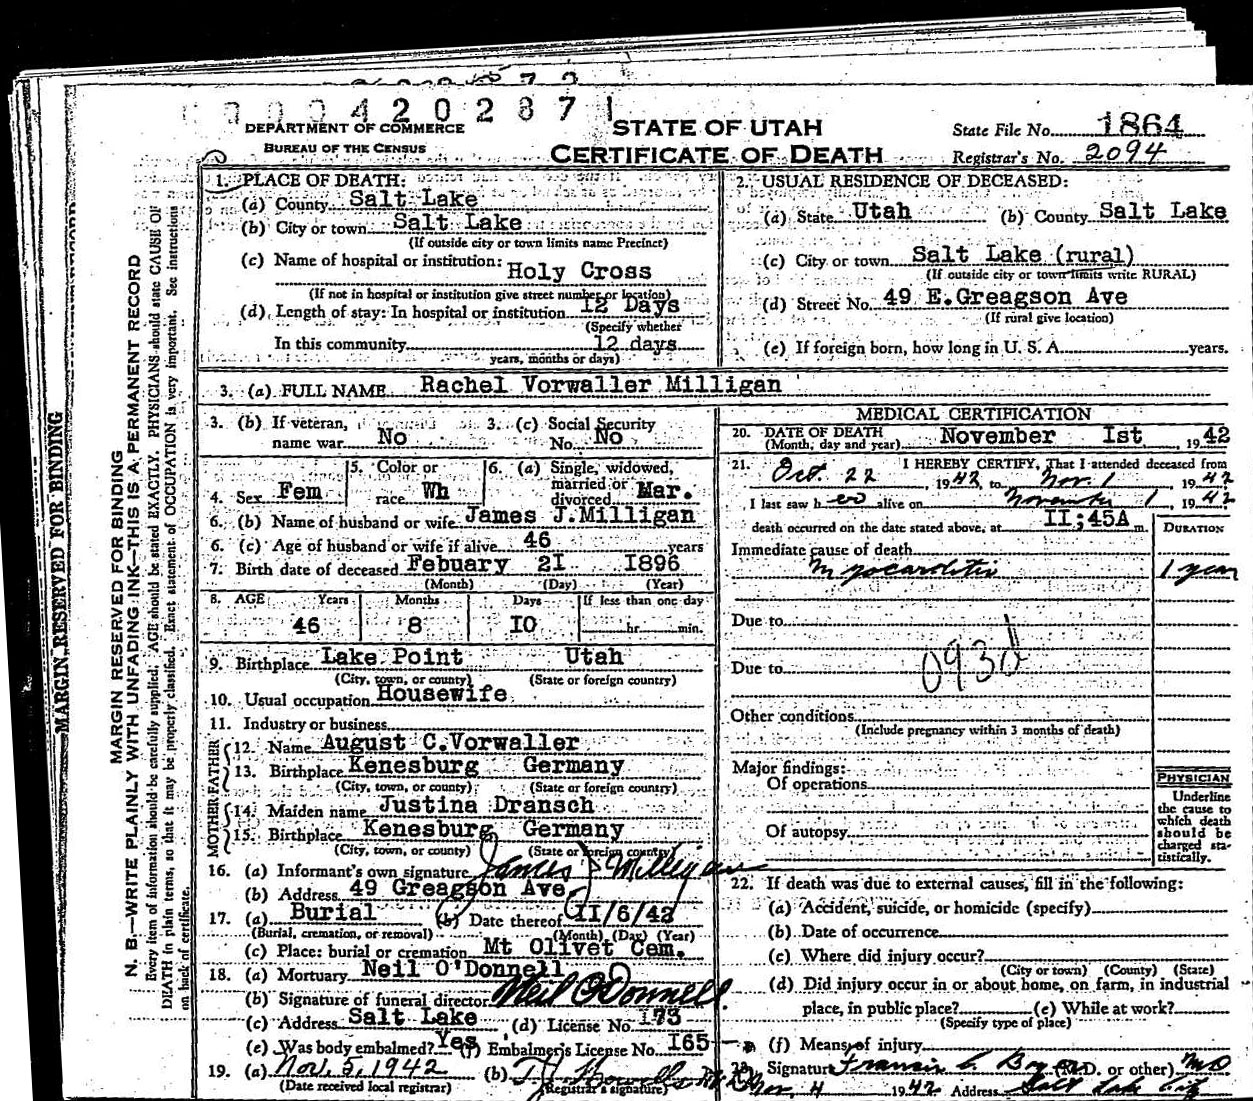 0 0 0 4 2 0 2 8 7 1
DEPARTMENT OF COMMERCE
BUREAU OF THE CENSUS
STATE OF UTAH
CERTIFICATE OF DEATH
State File No. 1864
Registrar's No. 2094
MARGIN RESERVED FOR BINDING
MARGIN RESERVED FOR BINDING
N. B.—WRITE PLAINLY WITH UNFADING INK—THIS IS A PERMANENT RECORD
Every item of information should be carefully supplied. AGE should be stated EXACTLY. PHYSICIANS should state CAUSE OF
DEATH in plain terms, so that it may be properly classified. Exact statement of OCCUPATION is very important. See instructions
on back of certificate.
1. PLACE OF DEATH:
(a) County Salt Lake
(b) City or town Salt Lake
(If outside city or town limits name Precinct)
(c) Name of hospital or institution:
Holy Cross
(If not in hospital or institution give street number or location)
(d) Length of stay: In hospital or institution 12 Days
(Specify whether
In this community 12 days
years, months or days)
2. USUAL RESIDENCE OF DECEASED:
(a) State Utah (b) County Salt Lake
(c) City or town Salt Lake (rural)
(If outside city or town limits write RURAL)
(d) Street No. 49 E.Greagson Ave
(If rural give location)
(e) If foreign born, how long in U. S. A. years.
3. (a) FULL NAME Rachel Vorwaller Milligan
3. (b) If veteran, name war No
3. (c) Social Security No. No
4. Sex Fem
5. Color or race Wh
6. (a) Single, widowed, married or divorced Mar.
6. (b) Name of husband or wife James J.Milligan
6. (c) Age of husband or wife if alive 46 years
7. Birth date of deceased Febuary 2I I896
(Month) (Day) (Year)
8. AGE Years Months Days If less than one day
46 8 I0 hr. min.
9. Birthplace Lake Point Utah
(City, town, or county) (State or foreign country)
10. Usual occupation Housewife
11. Industry or business
FATHER
12. Name August C.Vorwaller
13. Birthplace Kenesburg Germany
(City, town, or county) (State or foreign country)
MOTHER
14. Maiden name Justina Dransch
15. Birthplace Kenesburg Germany
(City, town, or county) (State or foreign country)
16. (a) Informant's own signature James J Milligan
(b) Address 49 Greagson Ave.
17. (a) Burial (b) Date thereof II/6/42
(Burial, cremation, or removal) (Month) (Day) (Year)
(c) Place: burial or cremation Mt Olivet Cem.
18. (a) Mortuary Neil O'Donnell
(b) Signature of funeral director Neil O'Donnell
(c) Address Salt Lake (d) License No. I73
(e) Was body embalmed? Yes (f) Embalmer's License No. I65
19. (a) Nov. 5, 1942 (b)
(Date received local registrar) (Registrar's signature)
MEDICAL CERTIFICATION
20. DATE OF DEATH
(Month, day and year) November Ist, 1942
21. I HEREBY CERTIFY, That I attended deceased from
Oct. 22, 1942, to Nov. 1, 1942
I last saw her alive on November 1, 1942
death occurred on the date stated above, at II;45A m.
DURATION
Immediate cause of death
Myocarditis 1 year
Due to
Due to
093d
Other conditions
(Include pregnancy within 3 months of death)
Major findings:
Of operations
Of autopsy
PHYSICIAN
Underline
the cause to
which death
should be
charged sta-
tistically.
22. If death was due to external causes, fill in the following:
(a) Accident, suicide, or homicide (specify)
(b) Date of occurrence
(c) Where did injury occur?
(City or town) (County) (State)
(d) Did injury occur in or about home, on farm, in industrial
place, in public place? (e) While at work?
(Specify type of place)
(f) Means of injury
23. Signature Francis (M.D. or other) MD
Nov. 4 1942 Address Salt Lake City